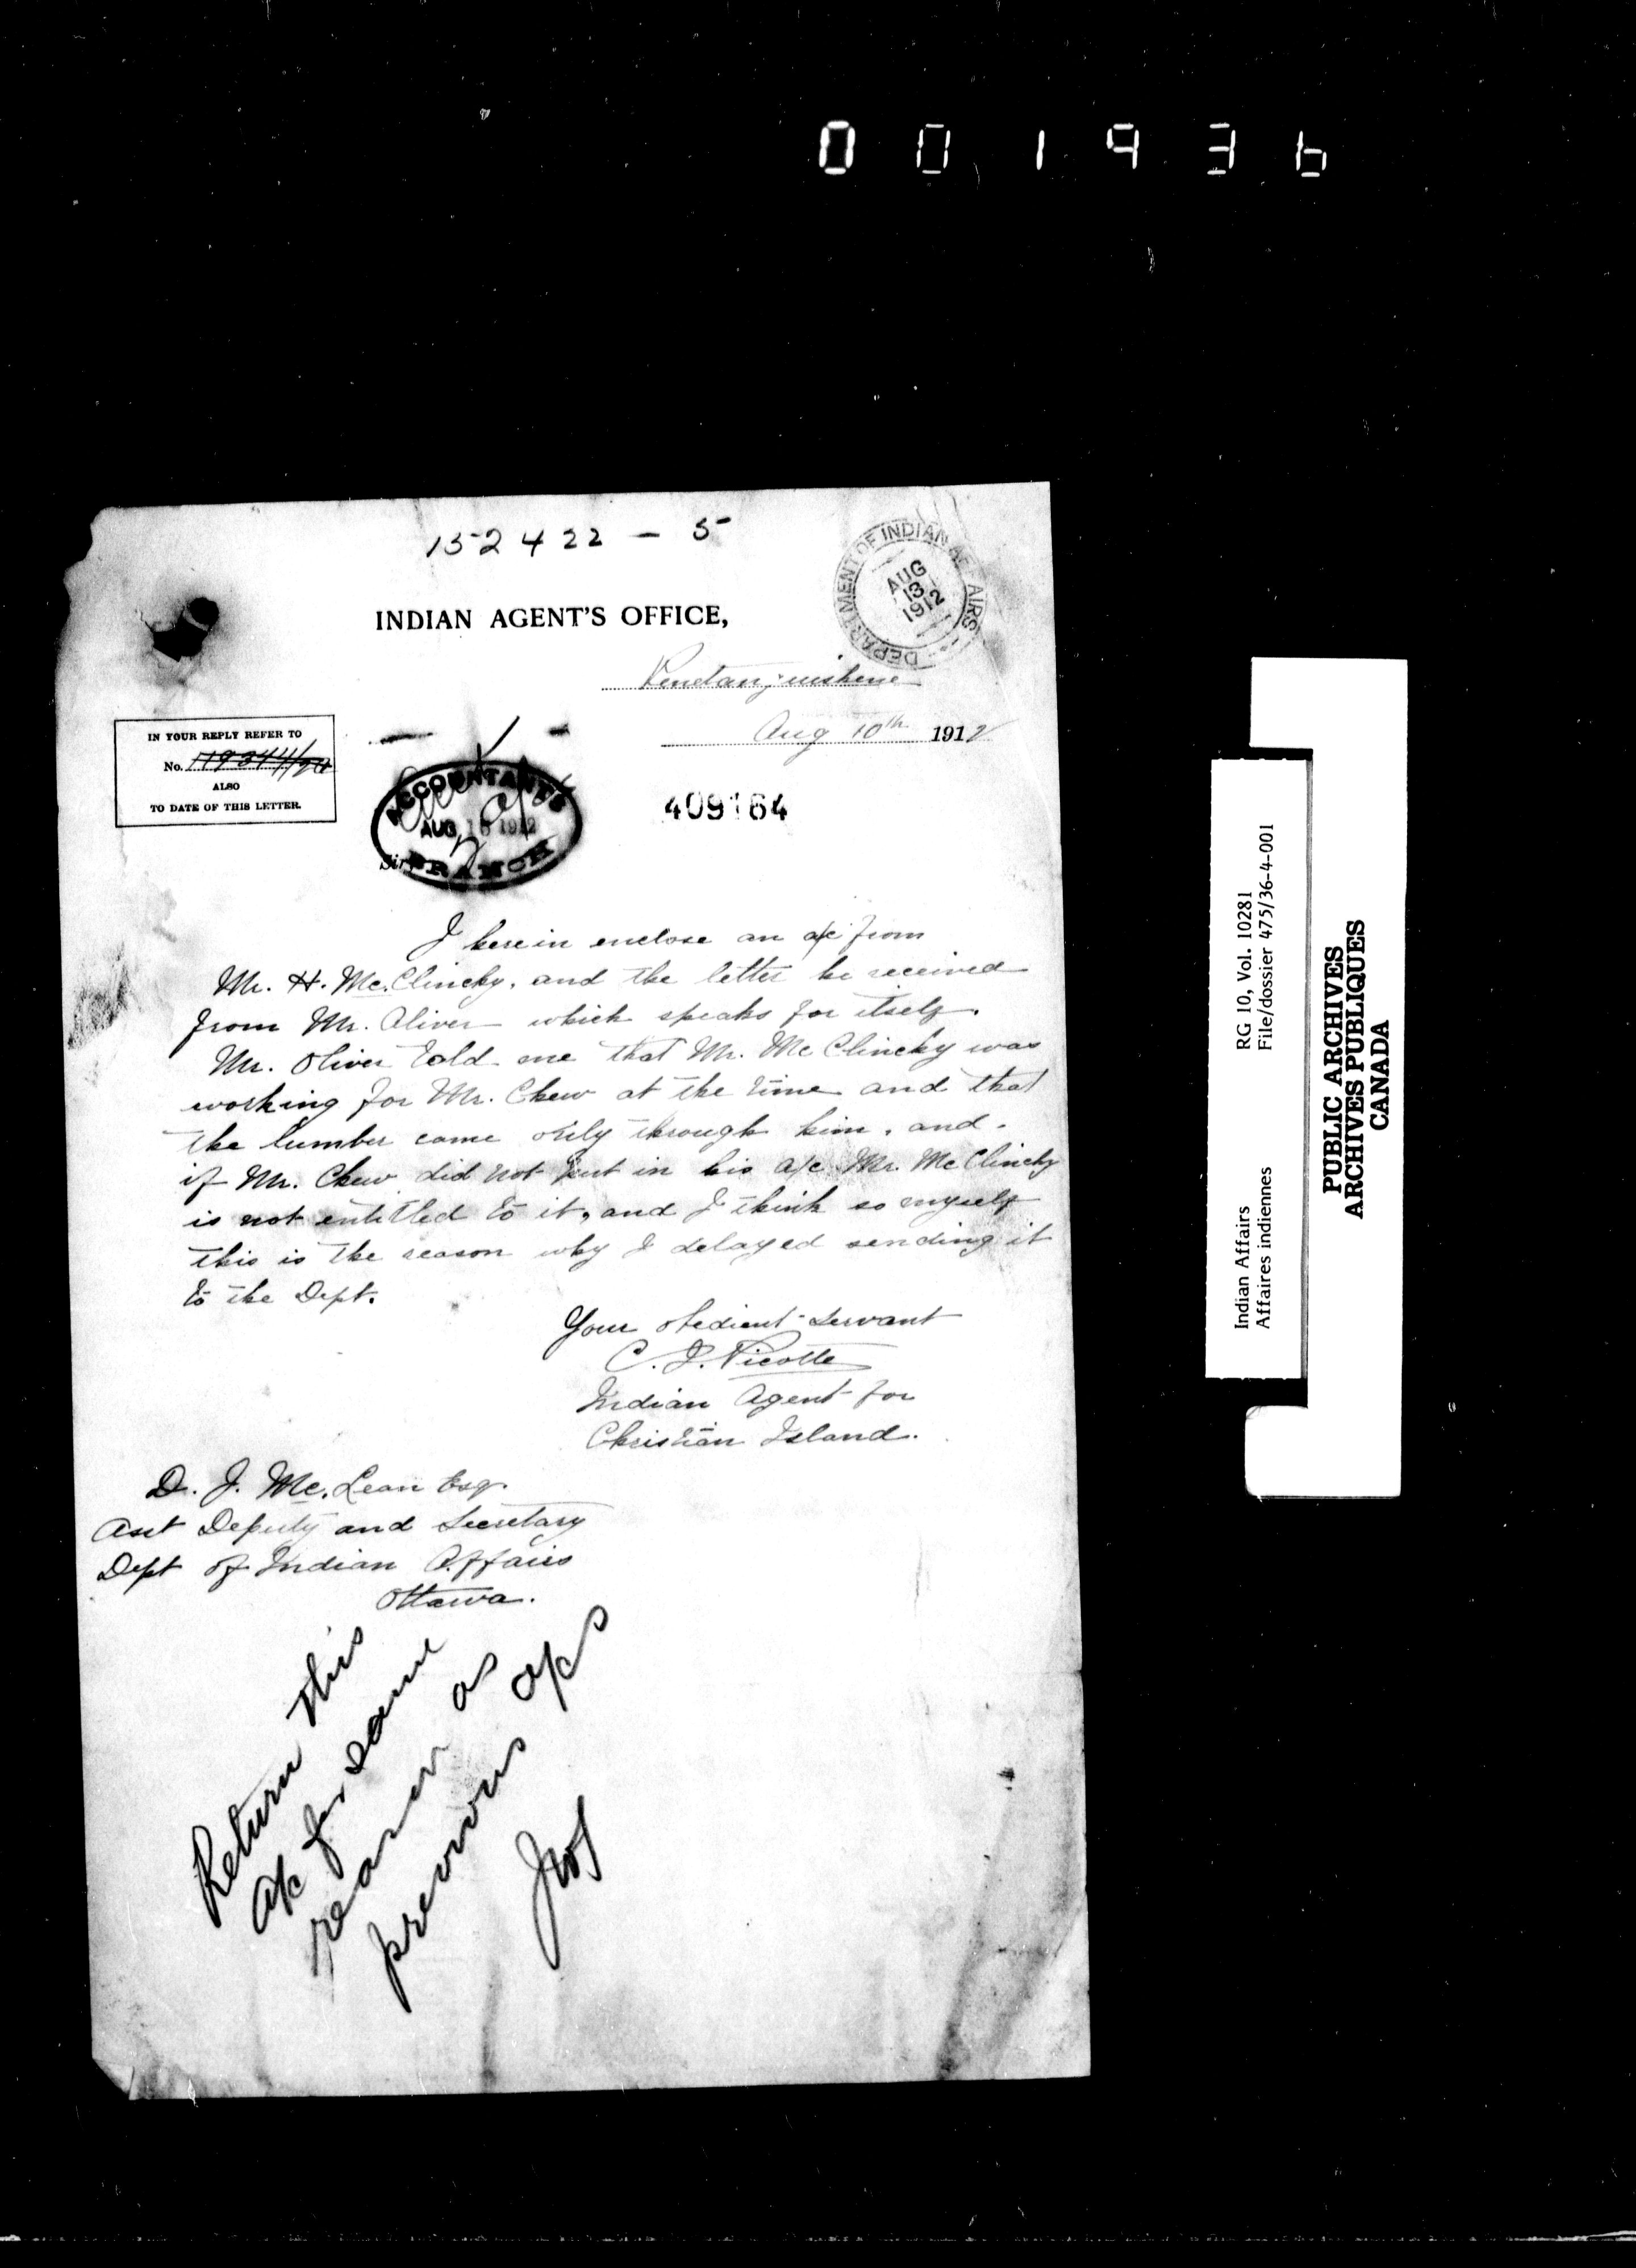 001936
152422 - 5
DEPARTMENT OF INDIAN AFFAIRS
AUG
13
1912
INDIAN AGENT'S OFFICE,
Penetanguishene
Aug 10th 1912
IN YOUR REPLY REFER TO
No.
ALSO
TO DATE OF THIS LETTER.
ACCOUNTANT'S
AUG 1912
BRANCH
409164
Sir,
I herein enclose an a/c from
Mr. H. Mc.Clinchy, and the letter he received
from Mr. Oliver which speaks for itself.
Mr. Oliver told me that Mr. Mc Clinchy was
working for Mr. Chew at the time and that
the lumber came only through him, and
if Mr. Chew did not put in his a/c Mr. Mc Clinchy
is not entitled to it, and I think so myself
this is the reason why I delayed sending it
to the Dept.
Your obedient servant
C. J. Picotte
Indian Agent for
Christian Island.
D. J. Mc. Lean Esq.
Asst Deputy and Secretary
Dept of Indian Affairs
Ottawa.
Return this
a/c for same
reason as
previous a/cs
Indian Affairs RG 10, Vol. 10281
Affaires indiennes File/dossier 475/36-4-001
PUBLIC ARCHIVES
ARCHIVES PUBLIQUES
CANADA